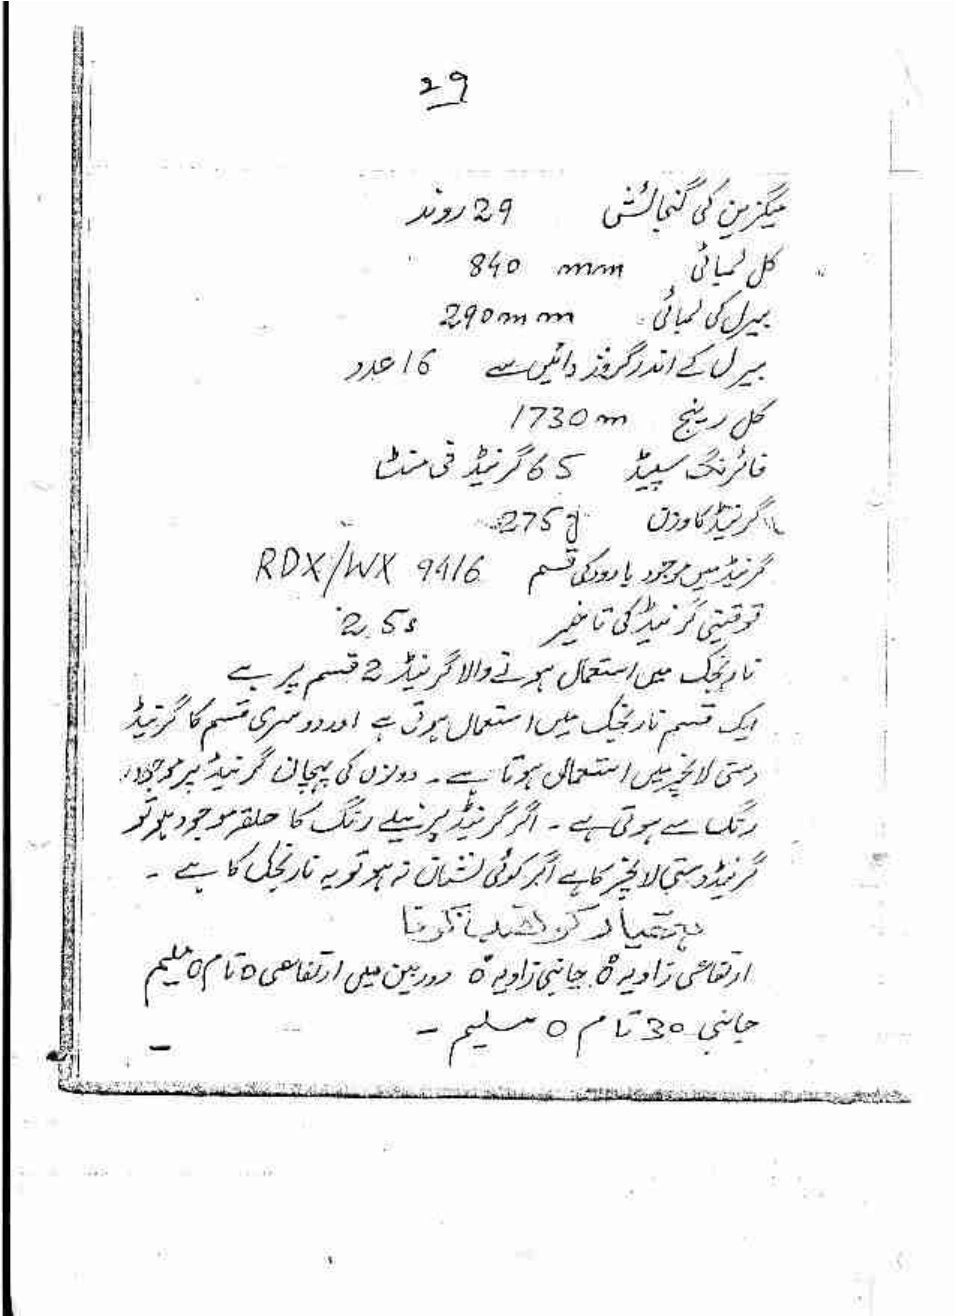 29
میگزین کی گنجائش 29 روند
کل لمبائی 840 mm
بیرل کی لمبائی 290mm
بیرل کے اندر گروز دائیں سے 16 عدد
کل رینج 1730m
فائرنگ سپیڈ 65 گرنیڈ فی منٹ
گرنیڈ کا وزن 275g
گرنیڈ میں موجود بارود کی قسم RDX/WX 94/6
توقیتی گرنیڈ کی تاخیر 2.5s
نارنجک میں استعمال ہونے والا گرنیڈ 2 قسم پر ہے
ایک قسم نارنجک میں استعمال ہوتی ہے اور دوسری قسم کا گرنیڈ
دستی لانچر میں استعمال ہوتا ہے۔ دونوں کی پہچان گرنیڈ پر موجود
رنگ سے ہوتی ہے۔ اگر گرنیڈ پر نیلے رنگ کا حلقہ موجود ہو تو
گرنیڈ دستی لانچر کا ہے اگر کوئی نشان نہ ہو تو یہ نارنجک کا ہے۔
ہتھیار کو
ارتفاعی زاویہ 0° جانبی زاویہ 0° دوربین میں ارتفاعی 0 تا م 0 ملیم
جانبی 30 تا م 0 سلیم۔